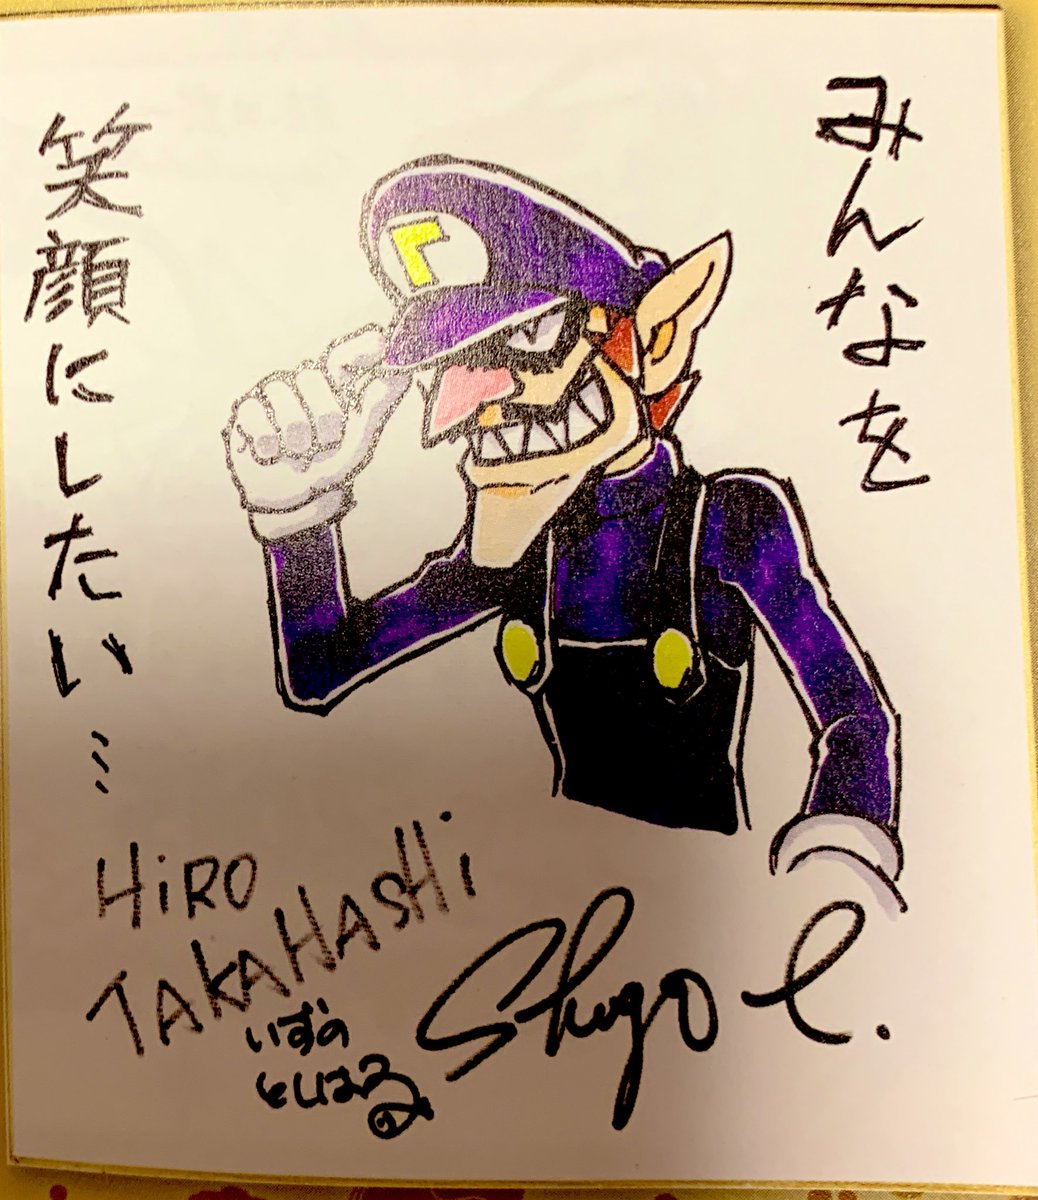 みんなを
笑顔にしたい…
HiRO
TAKAHASHi
いずの
Shugo